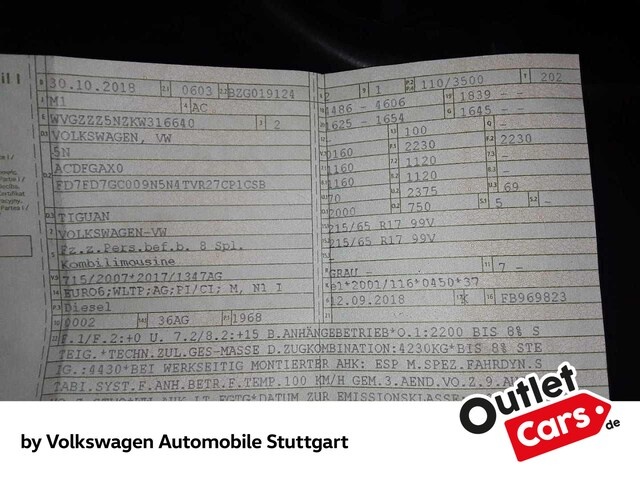 B 30.10.2018 2.1 0603 2.2 BZG019124
J M1 4 AC
E WVGZZZ5NZKW316640 3 2
D.1 VOLKSWAGEN, VW
5N
D.2 ACDFGAX0
FD7FD7GC009N5N4TVR27CP1CSB
D.3 TIGUAN
2 VOLKSWAGEN-VW
5 Fz.z.Pers.bef.b. 8 Spl.
Kombilimousine
V.9 715/2007*2017/1347AG
14 EURO6;WLTP;AG;PI/CI; M, N1 I
P.3 Diesel
10 0002 14.1 36AG P.1 1968
L 2 9 1 P.2 P.4 110/3500 T 202
18 4486 - 4606 19 1839 - -
20 1625 - 1654 G 1645 - -
100
2230 F.2 2230
0160 7.1 1120
1160 7.2 1120
1160 8.2
70 2375 U.3 69
2000 O.2 750 S.1 5 S.2 -
215/65 R17 99V
215/65 R17 99V
R GRAU - 11 7 -
K e1*2001/116*0450*37
6 12.09.2018 17 K 16 FB969823
21
22 F.1/F.2:+0 U. 7.2/8.2:+15 B.ANHÄNGEBETRIEB*O.1:2200 BIS 8% S
TEIG.*TECHN.ZUL.GES-MASSE D.ZUGKOMBINATION:4230KG*BIS 8% STE
IG.:4430*BEI WERKSEITIG MONTIERTER AHK: ESP M.SPEZ.FAHRDYN.S
TABI.SYST.F.ANH.BETR.F.TEMP.100 KM/H GEM.3.AEND.VO.Z.9.
DATUM ZUR EMISSIONSKLASSE
Outlet
Cars.de
by Volkswagen Automobile Stuttgart